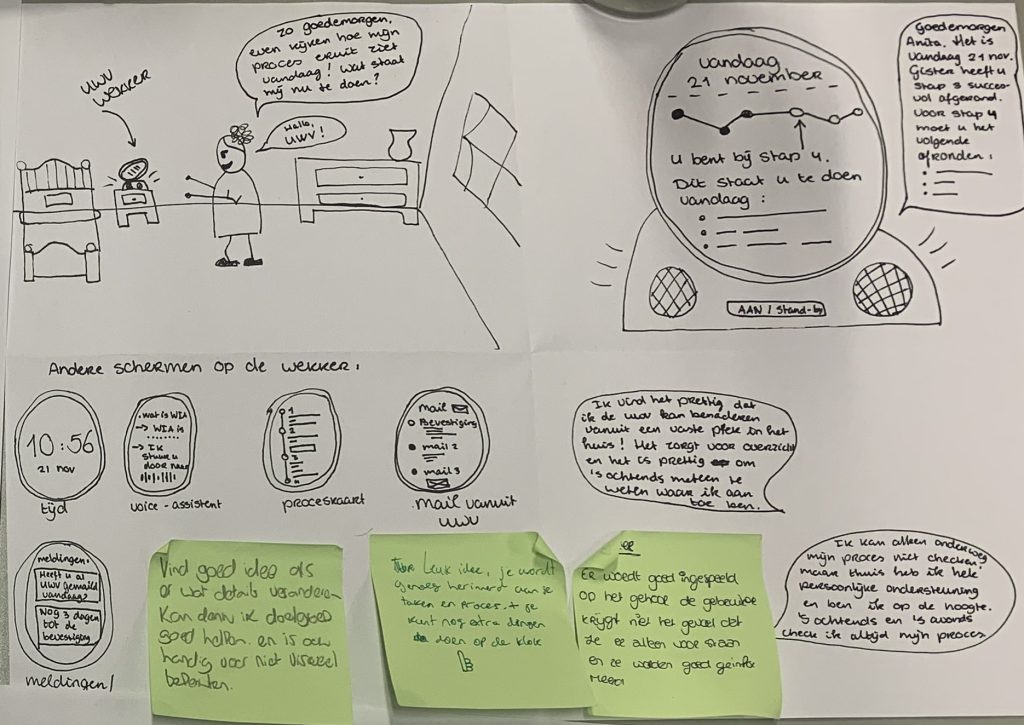 UWV
WEKKER
Zo goedemorgen,
even kijken hoe mijn
proces eruit ziet
vandaag! Wat staat
mij nu te doen?
Hallo,
UWV!
vandaag
21 november
U bent bij stap 4.
Dit staat u te doen
vandaag:
AAN / Stand-by
Goedemorgen
Anita. Het is
vandaag 21 nov.
Gisten heeft u
stap 3 succes-
vol afgerond.
Voor stap 4
moet u het
volgende
afronden:
Andere schermen op de wekker:
10:56
21 nov
tijd
wat is WIA
→ WIA is
→ Ik
stuur u
door naar
voice-assistent
1
proceskaart
mail
Bevestiging
mail 2
mail 3
mail vanuit
UWV
Ik vind het prettig dat
ik de UWV kan benaderen
vanuit een vaste plek in het
huis! Het zorgt voor overzicht
en het is prettig om
's ochtends meteen te
weten waar ik aan
toe ben.
meldingen:
Heeft u al
UWV gemaild
vandaag?
Nog 3 dagen
tot de
bevestiging
meldingen!
Vind goed idee als
er wat details veranderen
Kan dann ik doelgoed
goed helfen. en is ook
handig voor niet visueel
beperkten.
Leuk idee, je wordt
genoeg herinnerd aan je
taken en proces. + je
kunt nog extra dingen
doen op de klok
Er wordt goed ingespeeld
op het gehoor de gebruiker
krijgt niet het gevoel dat
ze er alleen voor staan
en ze worden goed geinfor
meerd
Ik kan alleen onderweg
mijn proces niet checken,
maar thuis heb ik hele
persoonlijke ondersteuning
en ben ik op de hoogte.
's ochtends en 's avonds
check ik altijd mijn proces